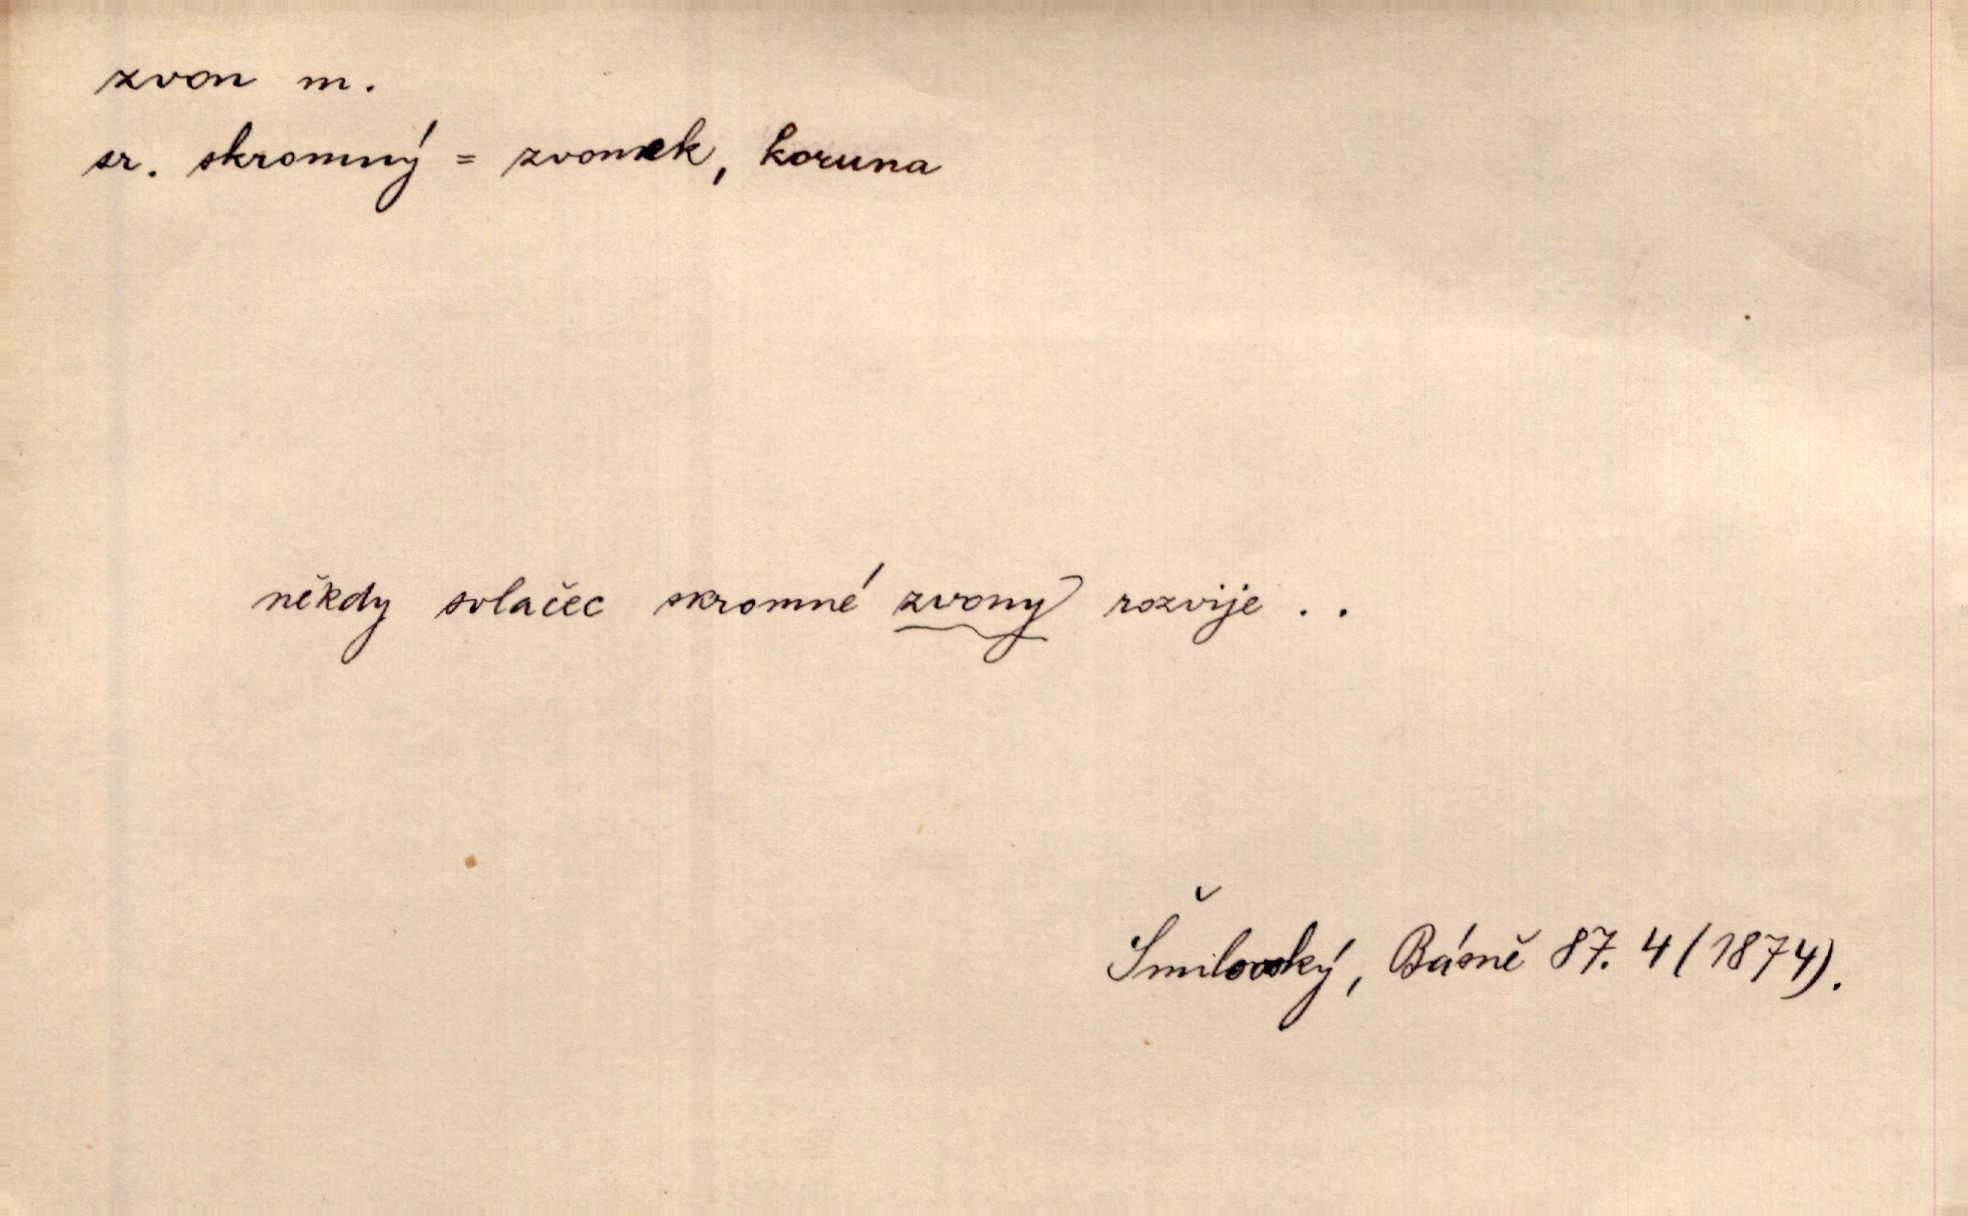 zvon m.
sr. skromný = zvonek, koruna
někdy svlačec skromné zvony rozvije . .
Šmilovský, Básně 87. 4 (1874).